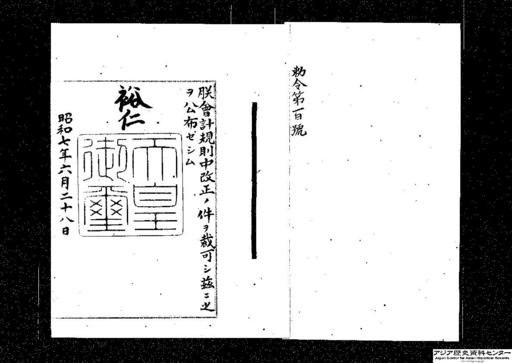 勅令第一百號
朕會計規則中改正ノ件ヲ裁可シ茲ニ之
ヲ公布セシム
裕仁
天皇御璽
昭和七年六月二十八日
アジア歴史資料センター
Japan Center for Asian Historical Records